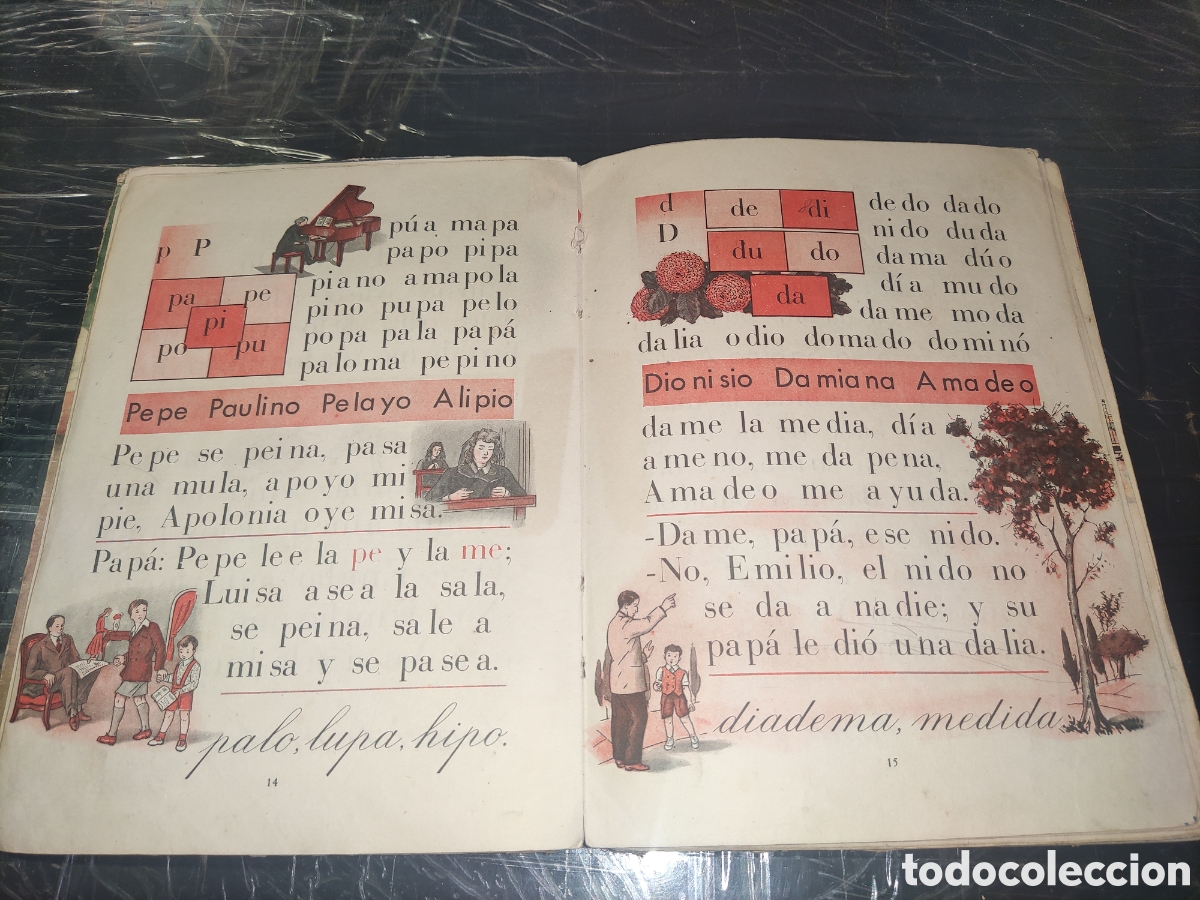 p P
pa pe
pi
po pu
púa mapa
papo pipa
piano amapola
pino pupa pelo
popa pala papá
paloma pepino
Pepe Paulino Pelayo Alipio
Pepe se peina, pasa
una mula, apoyo mi
pie, Apolonia oye misa.
Papá: Pepe lee la pe y la me;
Luisa asea la sala,
se peina, sale a
misa y se pasea.
palo, lupa, hipo.
14
d
D
de di
du do
da
dedo dado
nido duda
dama dúo
día mudo
dame moda
dalia odio domado dominó
Dionisio Damiana Amadeo
dame la media, día
ameno, me da pena,
Amadeo me ayuda.
-Dame, papá, ese nido.
-No, Emilio, el nido no
se da a nadie; y su
papá le dió una dalia.
diadema, medida.
15
todocoleccion